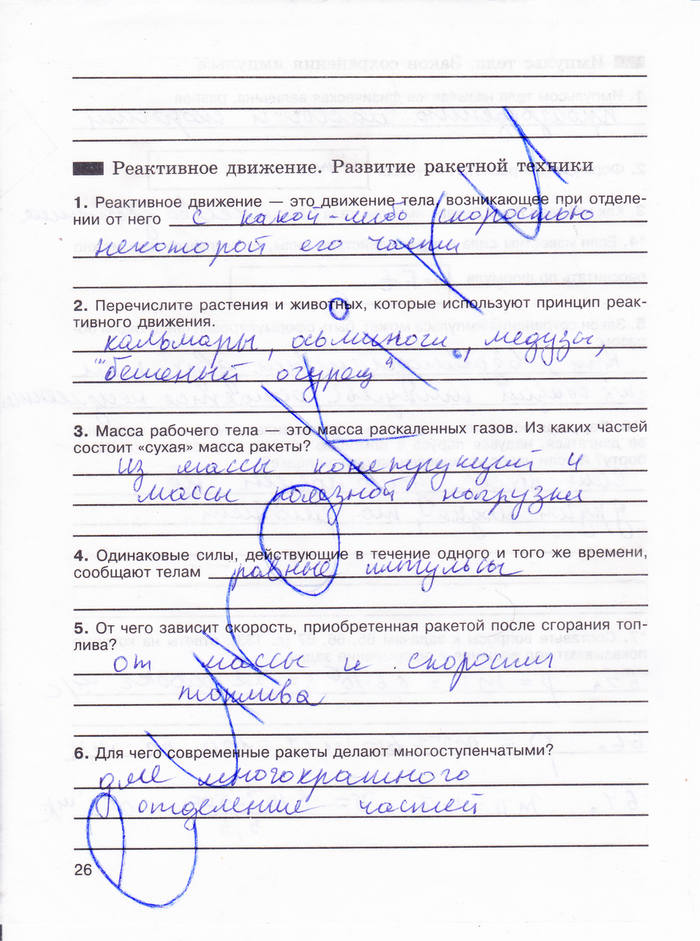 Реактивное движение. Развитие ракетной техники
1. Реактивное движение — это движение тела, возникающее при отделе-
нии от него с какой-либо скоростью
некоторой его части
2. Перечислите растения и животных, которые используют принцип реак-
тивного движения.
кальмары, осьминоги, медузы,
"бешеный огурец"
3. Масса рабочего тела — это масса раскаленных газов. Из каких частей
состоит «сухая» масса ракеты?
из массы конструкций и
массы полезной нагрузки
4. Одинаковые силы, действующие в течение одного и того же времени,
сообщают телам равные импульсы
5. От чего зависит скорость, приобретенная ракетой после сгорания топ-
лива?
от массы и скорости
топлива
6. Для чего современные ракеты делают многоступенчатыми?
для многократного
отделение частей
26